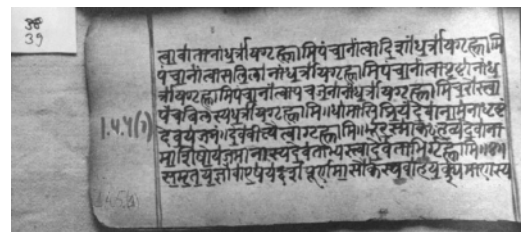 38
39
त्वा वातानां धर्त्राय गृह्णामि पंचानां त्वा दिशां धर्त्राय गृह्णामि
पंचानां त्वा सलिलानां धर्त्राय गृह्णामि पंचानां त्वा पृष्ठानां ध
र्त्राय गृह्णामि पंचानां त्वा पंचजनानां धर्त्राय गृह्णामि चरोस्त्वा
पंचबिलस्य धर्त्राय गृह्णामि॥ धामासि प्रियं देवानामनाधृष्टं
देवयजनं॥ देववीत्यै त्वा गृह्णामि॥ भूरस्माकं हव्यं देवाना
माशिषो यजमानस्य देवताभ्यस्त्वा देवताभिर्गृह्णामि॥४॥
समृतयज्ञो वा एष यद्दर्शपूर्णमासौ कस्य वाह यक्ष्यमाणस्य
1.4.4(1)